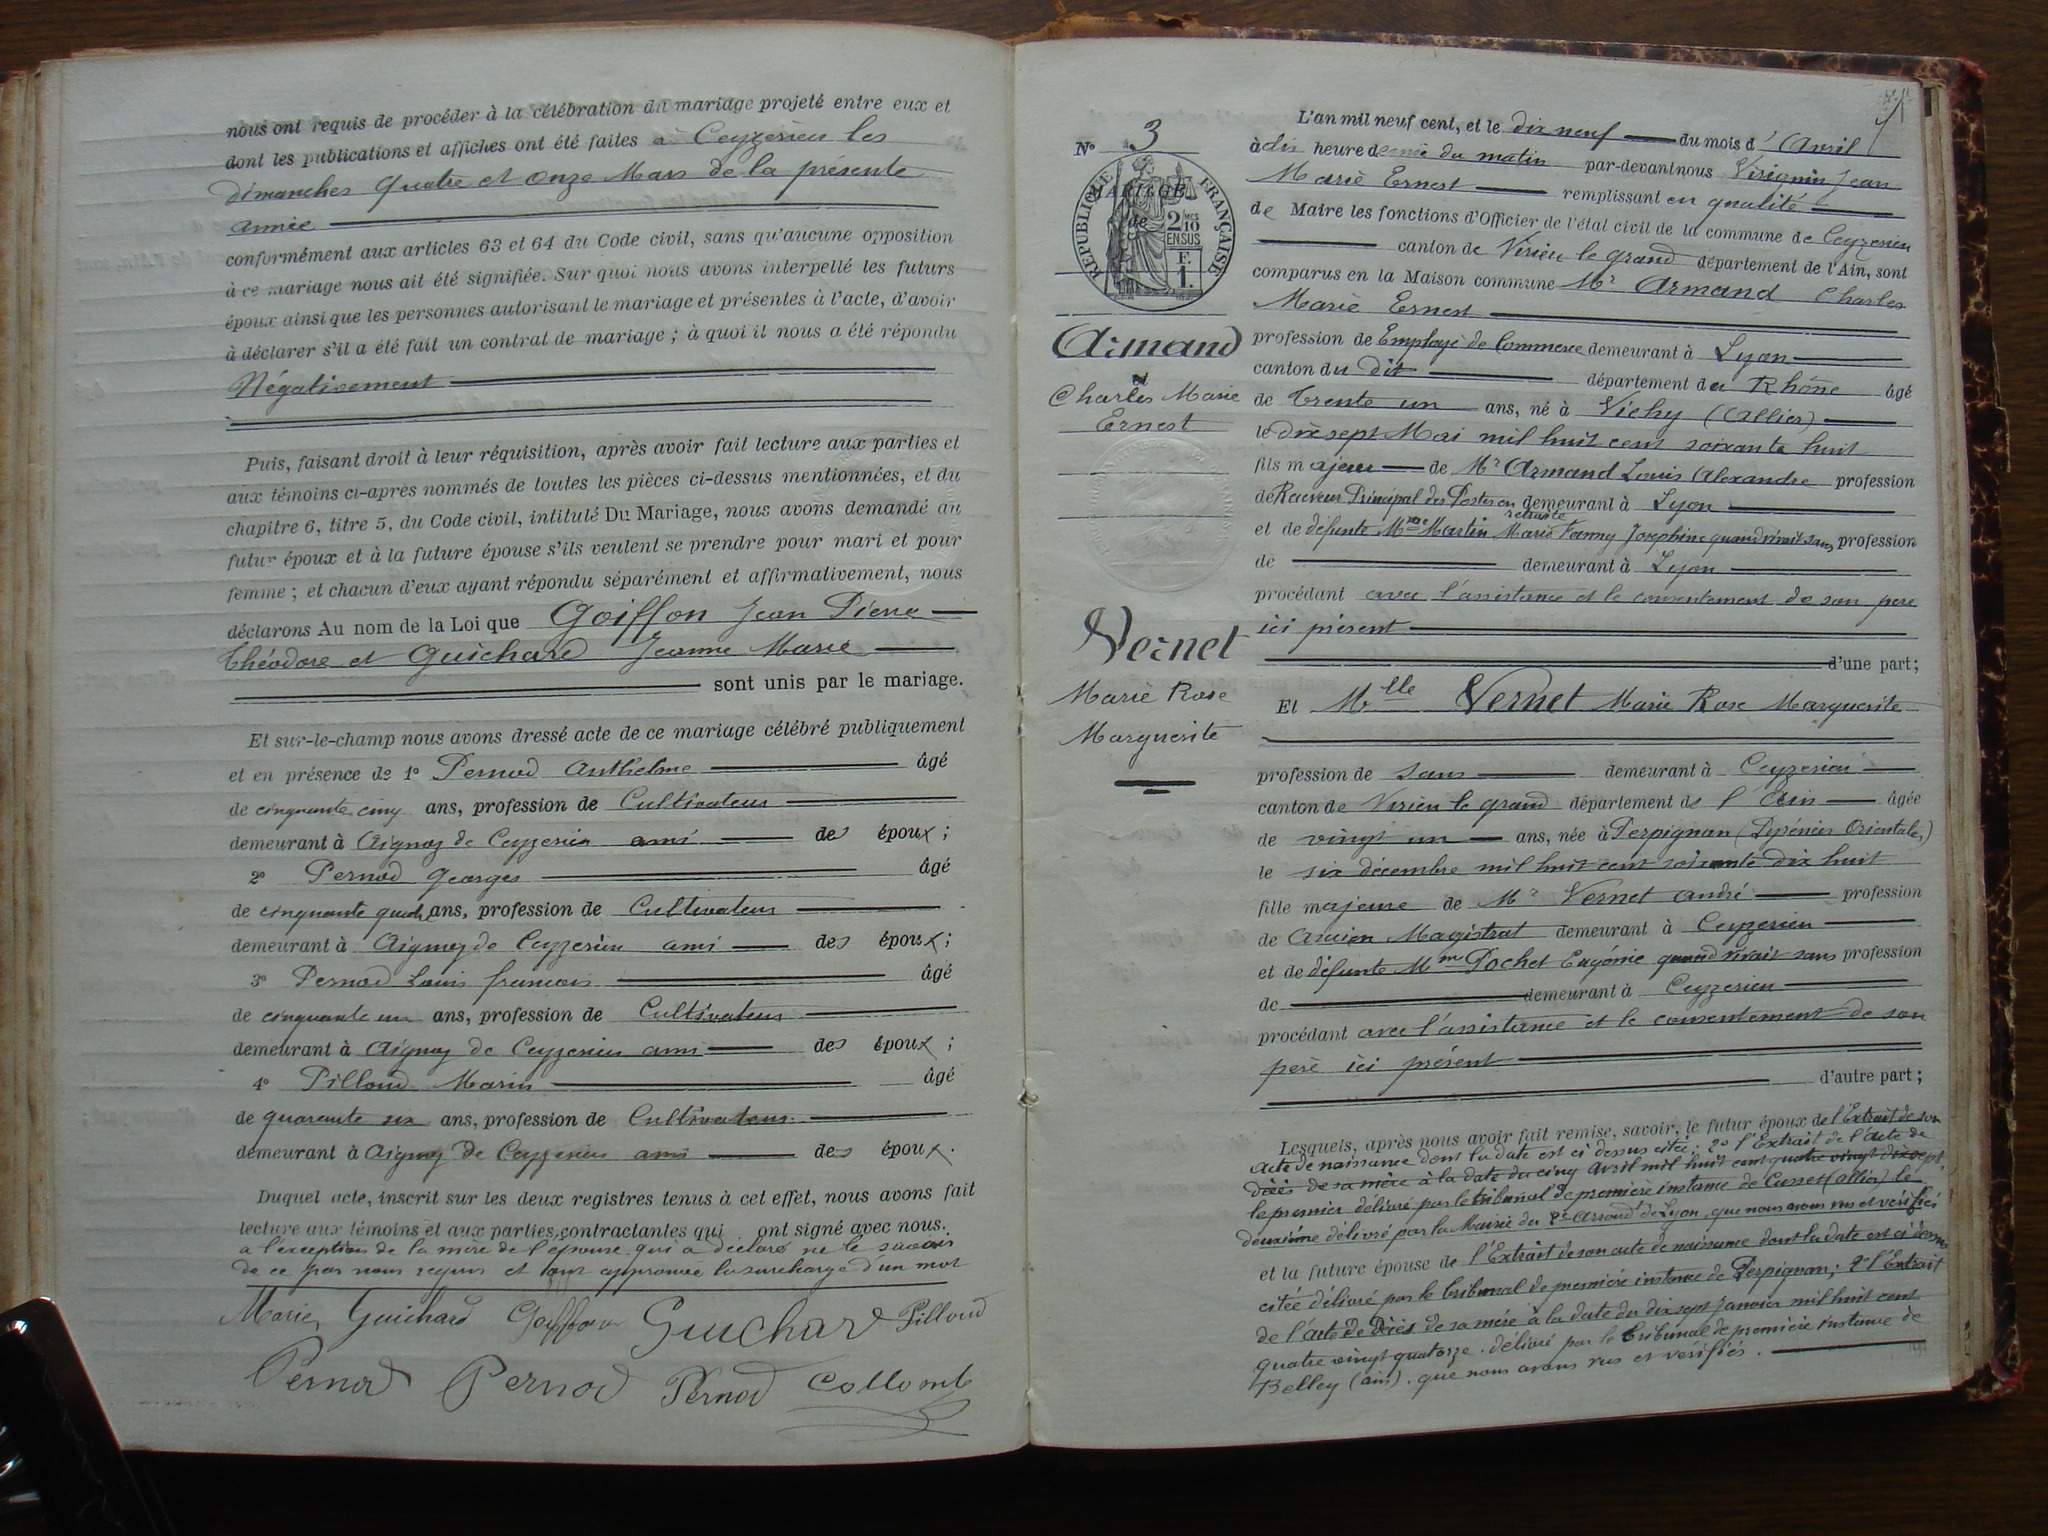 nous ont requis de procéder à la célébration du mariage projeté entre eux et
dont les publications et affiches ont été faites à Ceyzerieu les
dimanches Quatre et Onze Mars de la présente
année
conformément aux articles 63 et 64 du Code civil, sans qu'aucune opposition
à ce mariage nous ait été signifiée. Sur quoi nous avons interpellé les futurs
époux ainsi que les personnes autorisant le mariage et présentes à l'acte, d'avoir
à déclarer s'il a été fait un contrat de mariage ; à quoi il nous a été répondu
Négativement
Puis, faisant droit à leur réquisition, après avoir fait lecture aux parties et
aux témoins ci-après nommés de toutes les pièces ci-dessus mentionnées, et du
chapitre 6, titre 5, du Code civil, intitulé Du Mariage, nous avons demandé au
futur époux et à la future épouse s'ils veulent se prendre pour mari et pour
femme ; et chacun d'eux ayant répondu séparément et affirmativement, nous
déclarons Au nom de la Loi que Goiffon Jean Pierre
Théodore et Guichard Jeanne Marie
sont unis par le mariage.
Et sur-le-champ nous avons dressé acte de ce mariage célébré publiquement
et en présence de 1° Pernod Anthelme âgé
de cinquante cinq ans, profession de Cultivateur
demeurant à Aignoz de Ceyzerieu ami des époux ;
2° Pernod Georges âgé
de cinquante quatre ans, profession de Cultivateur
demeurant à Aignoz de Ceyzerieu ami des époux ;
3° Pernod Louis françois âgé
de cinquante un ans, profession de Cultivateur
demeurant à Aignoz de Ceyzerieu ami des époux ;
4° Pilloud Marin âgé
de quarante six ans, profession de Cultivateur
demeurant à Aignoz de Ceyzerieu ami des époux.
Duquel acte, inscrit sur les deux registres tenus à cet effet, nous avons fait
lecture aux témoins et aux parties contractantes qui ont signé avec nous.
a l'exception de la mère de l'épouse qui a déclaré ne le savoir
de ce par nous requis et tous approuvée la surcharge d'un mot
Marie Guichard Goiffon Guichard Pilloud
Pernod Pernod Pernod Collomb
N° 3
RÉPUBLIQUE FRANÇAISE
MARIAGE
de
2 MES 10 EN SUS
F. 1.
Armand
et
Charles Marie
Ernest
Vernet
Marie Rose
Marguerite
L'an mil neuf cent, et le dix neuf du mois d'Avril
à dix heure demie du matin par-devant nous Virignin Jean
Marie Ernest remplissant en qualité
de Maire les fonctions d'Officier de l'état civil de la commune de Ceyzerieu
canton de Virieu le grand département de l'Ain, sont
comparus en la Maison commune Mr Armand Charles
Marie Ernest
profession de Employé de Commerce demeurant à Lyon
canton du dit département du Rhône âgé
de trente un ans, né à Vichy (Allier)
le dix sept Mai mil huit cent soixante huit
fils majeur de Mr Armand Louis Alexandre profession
de Receveur Principal des Postes en retraite demeurant à Lyon
et de défunte Mme Martin Marie Fanny Joséphine quand vivait sans profession
de demeurant à Lyon
procédant avec l'assistance et le consentement de son père
ici présent
d'une part ;
Et Mlle Vernet Marie Rose Marguerite
profession de sans demeurant à Ceyzerieu
canton de Virieu le grand département de l'Ain âgée
de vingt un ans, née à Perpignan (Pyrénées Orientales)
le six décembre mil huit cent soixante dix huit
fille majeure de Mr Vernet André profession
de Ancien Magistrat demeurant à Ceyzerieu
et de défunte Mme Pochet Eugénie quand vivait sans profession
de demeurant à Ceyzerieu
procédant avec l'assistance et le consentement de son
père ici présent
d'autre part ;
Lesquels, après nous avoir fait remise, savoir, le futur époux de l'Extrait de son
acte de naissance dont la date est ci dessus citée ; 2° l'Extrait de l'acte de
décès de sa mère à la date du cinq avril mil huit cent quatre vingt dix sept,
le premier délivré par le tribunal de première instance de Cusset (allier) le
deuxième délivré par la Mairie du 2e Arrond de Lyon, que nous avons vus et vérifiés
et la future épouse de l'Extrait de son acte de naissance dont la date est ci dessus
citée délivré par le tribunal de première instance de Perpignan ; 2° l'Extrait
de l'acte de décès de sa mère à la date du dix sept Janvier mil huit cent
quatre vingt quatorze, délivré par le tribunal de première instance de
Belley (ain). que nous avons vus et vérifiés.